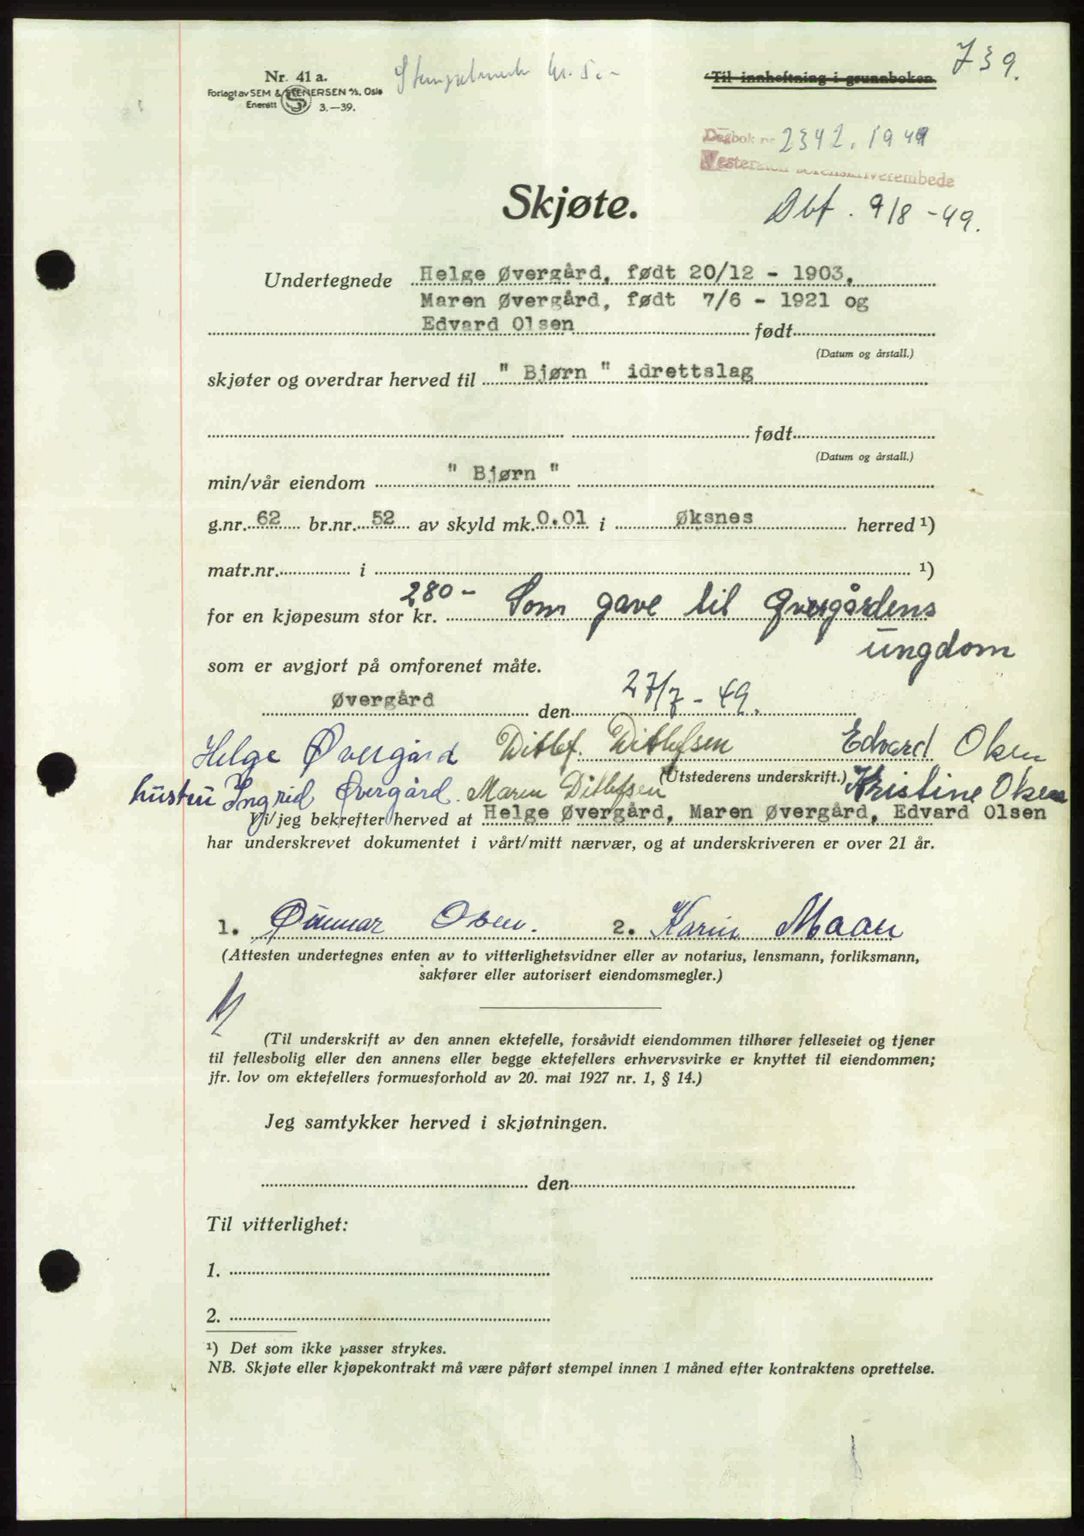 739.
Nr. 41 a.
Forlagt av SEM & STENERSEN A/S, Oslo
Enerett 3.—39.
Til innheftning i grunnboken.
Dagbok nr 2342. 1949
Vesterålen sorenskriverembede
Dbf. 9/8 - 49.
Skjøte.
Undertegnede Helge Øvergård, født 20/12 - 1903,
Maren Øvergård, født 7/6 - 1921 og
Edvard Olsen født
(Datum og årstall.)
skjøter og overdrar herved til " Bjørn " idrettslag
født
(Datum og årstall.)
min/vår eiendom " Bjørn "
g.nr. 62 br.nr. 52 av skyld mk. 0.01 i Øksnes herred ¹)
matr.nr. i ¹)
for en kjøpesum stor kr. 280 - Som gave til Øvergårdens
ungdom
som er avgjort på omforenet måte.
Øvergård den 27/7 - 49.
Helge Øvergård Ditlef. Ditlefsen Edvard Olsen
(Utstederens underskrift.)
hustru Ingrid Øvergård. Maren Ditlefsen Kristine Olsen
Vi/jeg bekrefter herved at Helge Øvergård, Maren Øvergård, Edvard Olsen
har underskrevet dokumentet i vårt/mitt nærvær, og at underskriveren er over 21 år.
1. Gunnar Olsen. 2. Karin Maan
(Attesten undertegnes enten av to vitterlighetsvidner eller av notarius, lensmann, forliksmann,
sakfører eller autorisert eiendomsmegler.)
(Til underskrift av den annen ektefelle, forsåvidt eiendommen tilhører felleseiet og tjener
til fellesbolig eller den annens eller begge ektefellers erhvervsvirke er knyttet til eiendommen;
jfr. lov om ektefellers formuesforhold av 20. mai 1927 nr. 1, § 14.)
Jeg samtykker herved i skjøtningen.
den
Til vitterlighet:
1.
2.
¹) Det som ikke passer strykes.
NB. Skjøte eller kjøpekontrakt må være påført stempel innen 1 måned efter kontraktens oprettelse.